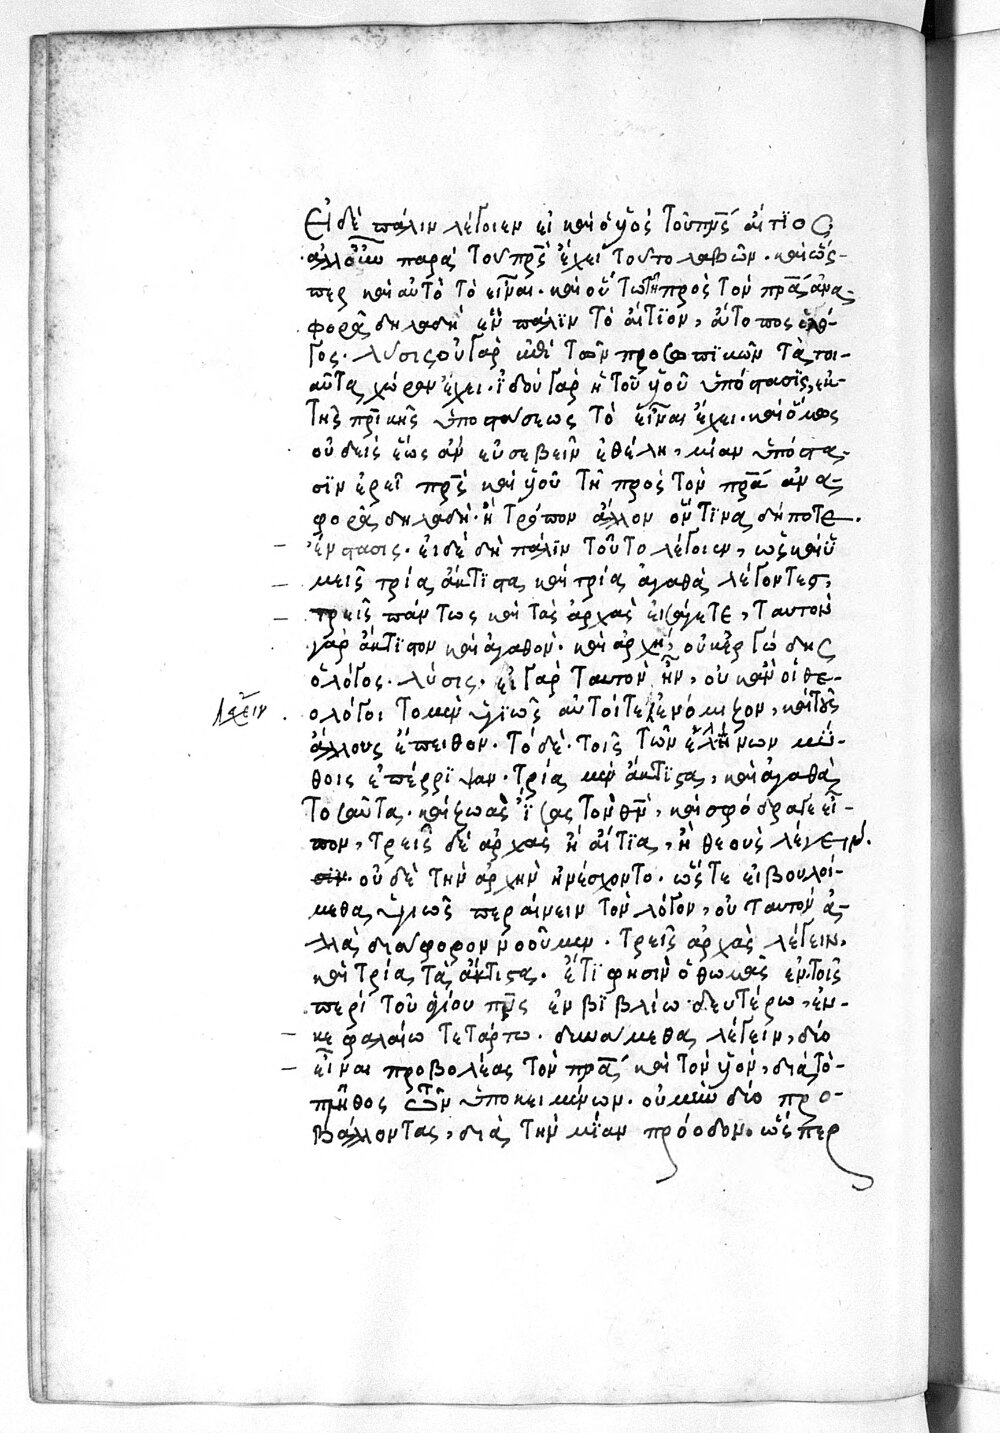 Εἰ δὲ πάλιν λέγοιεν εἰ καὶ ὁ υἱὸς τοῦ πνς αἴτιος
ἀλλ' οὖν παρὰ τοῦ πρς ἔχει τοῦτο λαβών. καὶ ὥσ-
περ καὶ αὐτὸ τὸ εἶναι. καὶ οὕτω τῆ πρὸς τὸν πρα ἀνα-
φορᾶ δηλαδὴ ἓν πάλϊν τὸ αἴτϊον, ἄτοπος ὁ λό-
γος. λύσις οὐ γὰρ ἐπὶ τῶν προσωπϊκῶν τὰ τοι-
αῦτα χώραν ἔχει. ἰδοὺ γὰρ ἡ τοῦ υἱοῦ ὑπόστασϊς, ἐκ
τῆς πρικῆς ὑποστάσεως τὸ εἶναι ἔχει. καὶ ὅμως
οὐδεὶς ἕως ἂν εὐσεβεῖν ἐθέλη, μίαν ὑπόστα-
σϊν ἐρεῖ πρς καὶ υἱοῦ τῆ πρὸς τὸν πρα ἀνα-
φορᾶ δηλαδὴ. ἢ τρόπον ἄλλον ὅντϊνα δήποτε.
ἔνστασις. εἰ δὲ δὴ πάλϊν τοῦτο λέγοιεν, ὡς καὶ ὑ
μεῖς τρία ἄκτϊστα καὶ τρία ἀγαθὰ λέγοντες,
τρεῖς πάντως καὶ τὰς ἀρχὰς εἰσάγετε, ταυτὸν
γὰρ ἄκτϊστον καὶ ἀγαθὸν. καὶ ἀρχή, οὐκ ἐργώδης
ὁ λόγος. λύσις. εἰ γὰρ ταυτὸν ἦν, οὐκ ἂν οἱ θε-
λέγειν . ολόγοι τὸ μὲν ὑγιῶς αὐτοί τε ἐνόμιζον, καὶ τοὺς
ἄλλους ἔπειθον. τὸ δὲ. τοῖς τῶν ἑλλήνων μύ-
θοις ἐπέρρϊψαν. τρία μὲν ἄκτϊστα, καὶ ἀγαθὰ
τοσαῦτα. καὶ ζωὰς ἴσας τὸν θν, καὶ σφόδρα γε εἶ-
πον, τρεῖς δὲ ἀρχὰς ἢ αἴτϊα, ἢ θεοὺς λέγειν.
σϊν. οὐδὲ τὴν ἀρχὴν ἠνέσχοντο. ὥστε εἰ βουλοί-
μεθα ὑγιῶς περαίνειν τὸν λόγον, οὐ ταυτὸν ἀ-
λλὰ διάφορον νοοῦμεν. τρεῖς ἀρχὰς λέγειν,
καὶ τρία τὰ ἄκτιστα. ἔτϊ φησὶν ὁ θωμᾶς ἐν τοῖς
περὶ τοῦ ἁγίου πνς ἐν βϊβλίω δευτέρω, ἐν
κεφαλαίω τετάρτω. δυνάμεθα λέγειν, δύο
εἶναι προβολέας τὸν πρα καὶ τὸν υἱόν, διὰ τὸ
πλῆθος τῶν ὑποκειμένων. οὐ μὴν δύο προ-
βάλλοντας, διὰ τὴν μϊαν πρόοδον. ὥσπερ